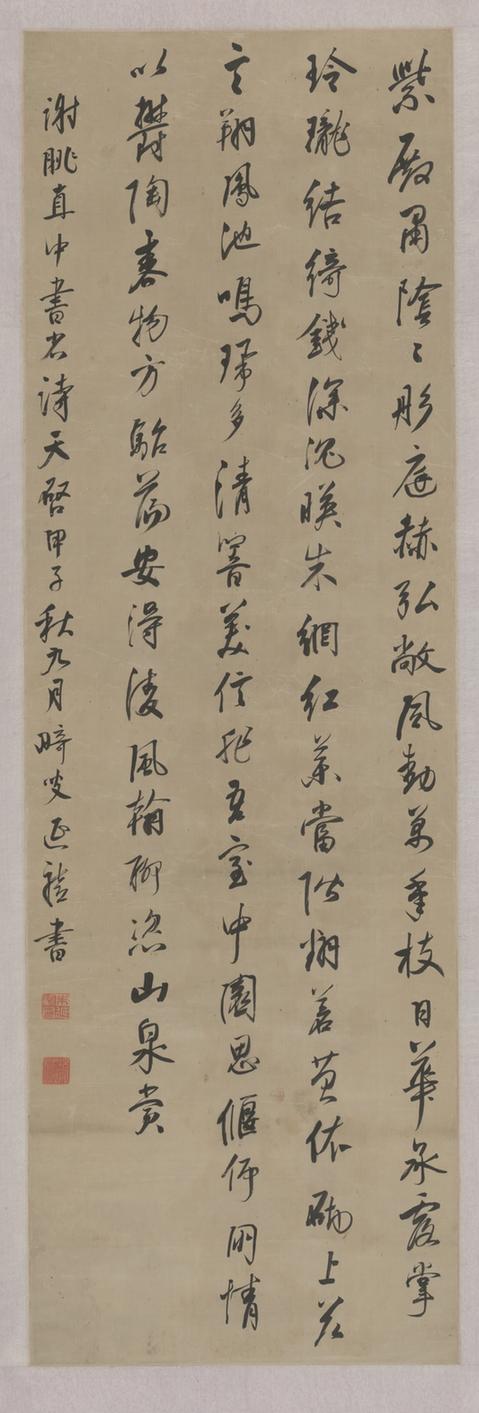 紫殿肅陰〻彤庭赫弘敞風動萬年枝日華承露掌
玲瓏結綺錢深沉暎朱網紅藥當階翻蒼苔依砌上茲
言翔鳳池鳴珮多清響美信非吾室中園思偃仰朋情
以鬱陶春物方駘蕩安得凌風翰聊恣山泉賞
謝朓直中書省詩天啓甲子秋九月畸叟延禧書